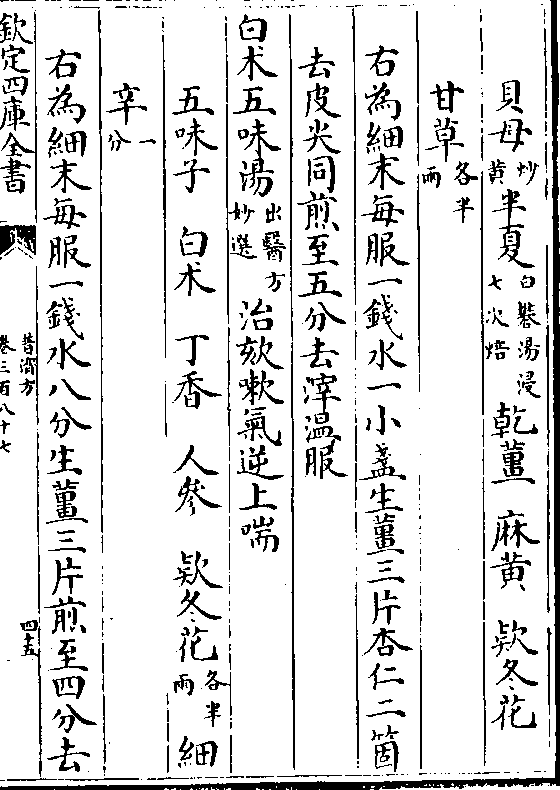 貝母炒黄半夏白礬湯浸七次焙乾薑 麻黄 欵冬花
甘草各半兩
右為細末每服一錢水一小盞生薑三片杏仁二箇
去皮尖同煎至五分去滓温服
白朮五味湯出醫方妙選治欬嗽氣逆上喘
五味子 白朮 丁香 人參 欵冬花各半兩 細
辛一分
右為細末每服一錢水八分生薑三片煎至四分去
欽定四庫全書
普濟方
卷三百八十七
四十五